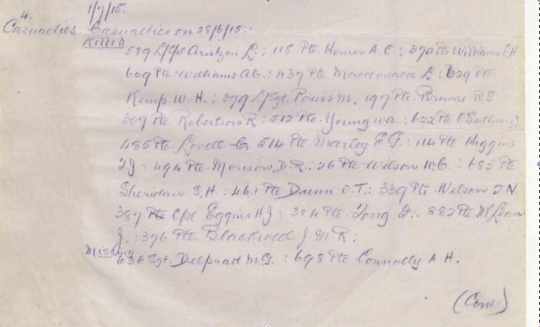 4. 1/7/15.
Casualties Casualties on 28/6/15:-
Killed
589 L/Cpl Arntzen L: 115 Pte Homer A C: 370 Pte Williams
609 Pte Williams A G.: 1137 Pte Macdonald L: 629 Pte
Kemp W. H.: 379 L/Sgt. Powis M, 197 Pte R.S.
309 Pte. Robertson R: 512 Pte Young W A: 622 Pte
485 Pte Lovett C 514 Pte Morley E F: 114 Pte Higgins
T J: 494 Pte. Morrison D. R.: 26 Pte Wilson W G.: 685 Pte
Sheridan S. H: 461 Pte Dunn O. T.: 339 Pte Wilson J N
387 Pte Cpl Eggins H J: 384 Pte Tong F.: 882 Pte
J.: 376 Pte. Blackwell J. M. R:
Missing
636 Sgt. Delprad M. G.: 698 Pte Connolly A H.
(Cont)